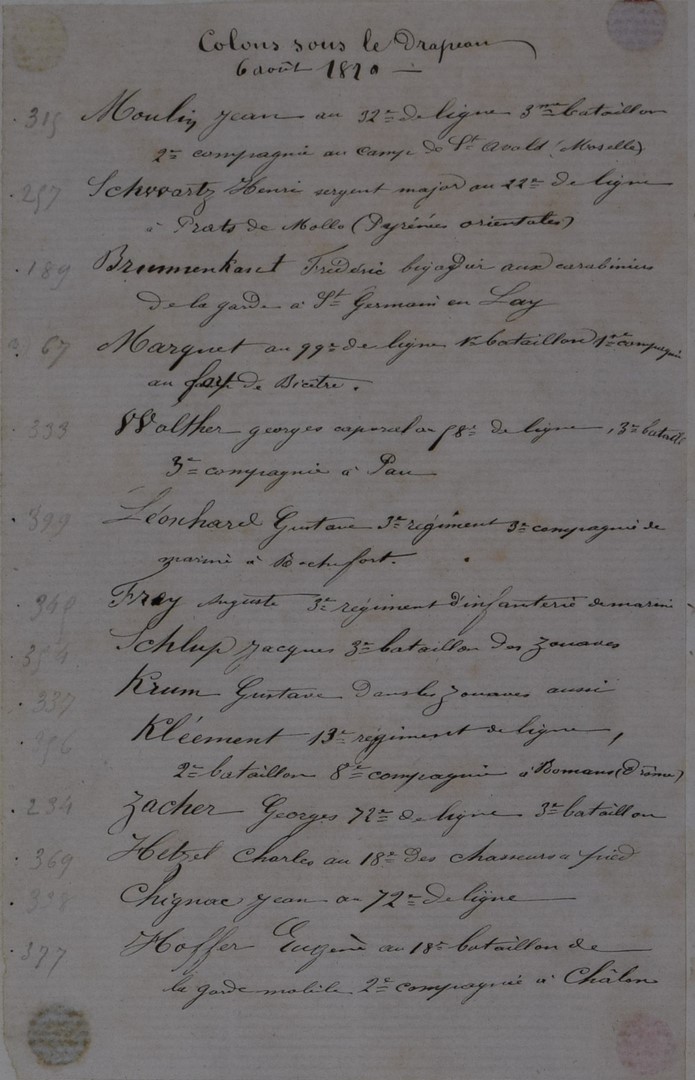 Colons sous le Drapeau
6 août 1870 —
. 315 Moulin Jean au 32e de ligne 3me bataillon
2e compagnie au camp de St Avold (Moselle)
. 257 Schwartz Henri sergent major au 22e de ligne
à Prats de Mollo (Pyrénées orientales)
. 189 Brummenkant Frédéric au carabiniers
de la garde à St Germain en Lay
67 Marquet au 99e de ligne 1r bataillon 1re compagnie
au fort de Bicêtre .
. 333 Walther georges caporal au 58e de ligne , 3e bataill
3e compagnie à Pau
. 399 Léonhard Gustave 3e régiment 3e compagnie de
marine à Rochefort.
. 345 Frey Auguste 3e régiment d'infanterie de marine
. 354 Schlup Jacques 3e bataillon des zouaves
. 337 Krum Gustave dans les zouaves aussi
. 356 Kléement 13e régiment de ligne,
2e bataillon 8e compagnie à Romans (Drôme)
. 234 Zacher Georges 72e de ligne 3e bataillon
. 369 Hetzel Charles au 18e des chasseurs a pied
. 338 Chignac Jean au 72e de ligne
. 377 Hoffer Eugène au 18e bataillon de
la garde mobile 2e compagnie à Châlon